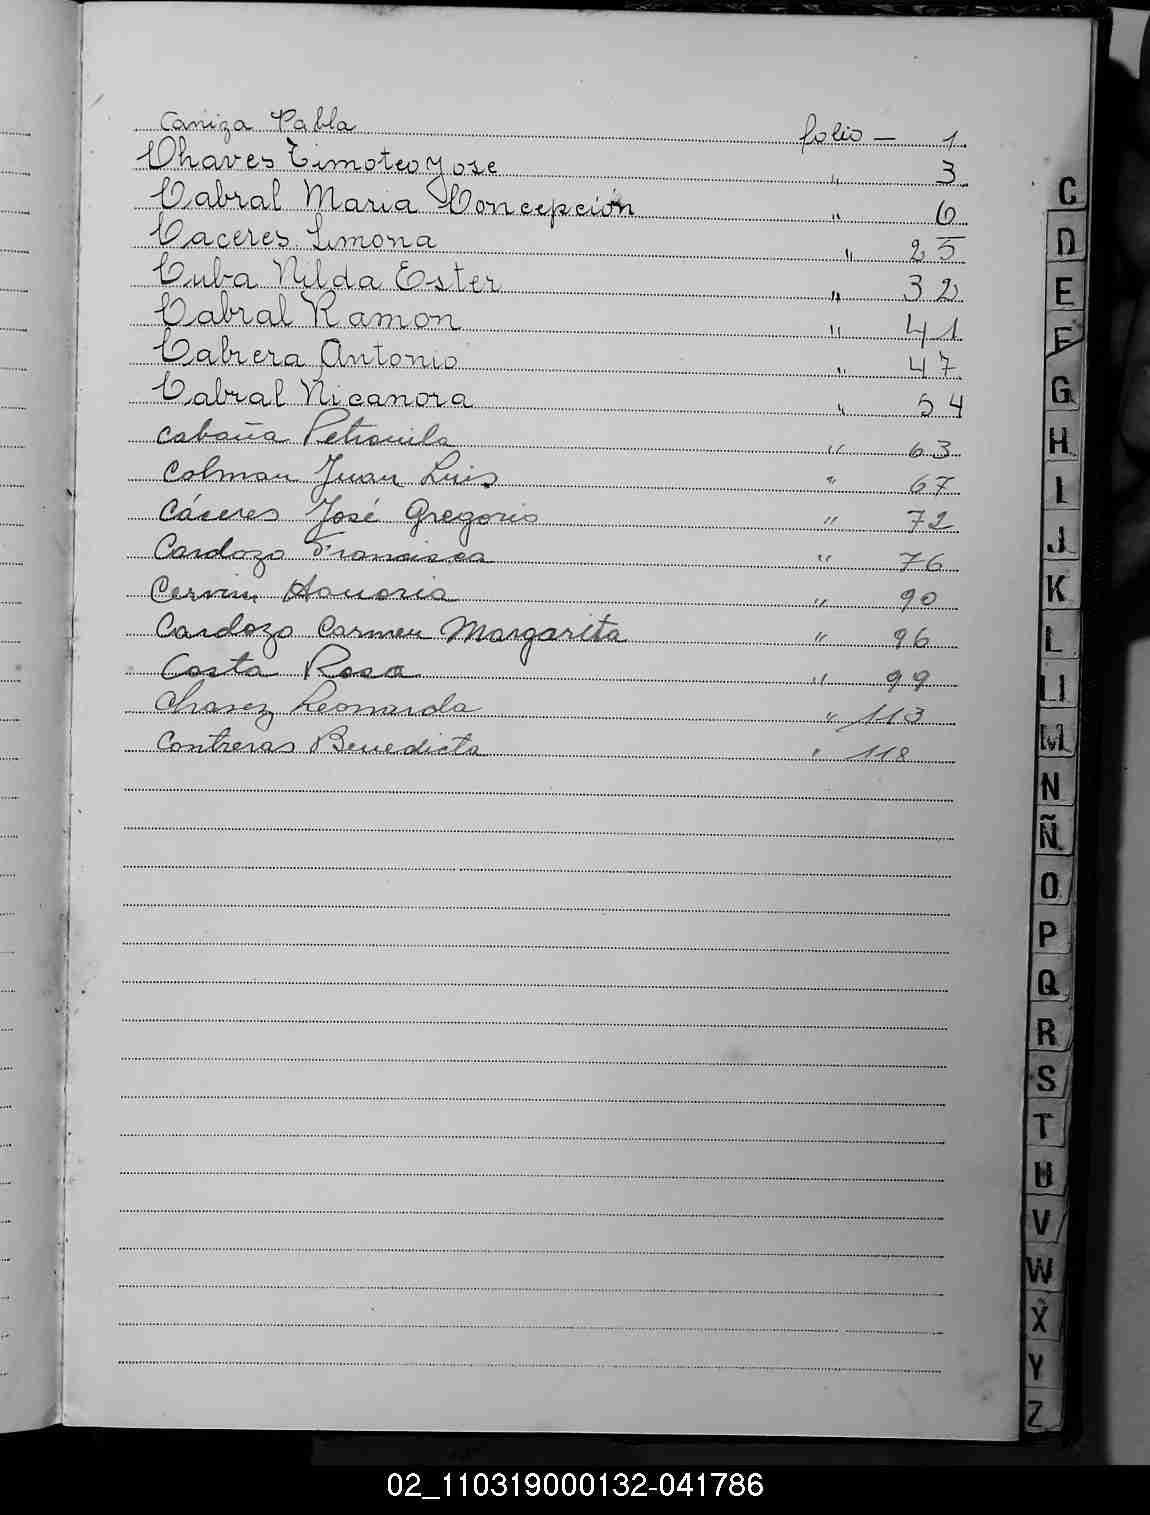 Caniza Pabla folio — 1
Chaves Timoteo Jose " 3
Cabral Maria Concepción " 6
Caceres Limona " 25
Cuba Nilda Ester " 32
Cabral Ramon " 41
Cabrera Antonio " 47
Cabral Nicanora " 54
Cabaña Petronila " 63
Colman Juan Luis " 67
Cáceres José Gregorio " 72
Cardozo Francisca " 76
Cervin Honoria " 90
Cardozo Carmen Margarita " 96
Costa Rosa " 99
Chavez Leonarda " 113
Contreras Benedicta " 118
C
D
E
F
G
H
I
J
K
L
Ll
M
N
Ñ
O
P
Q
R
S
T
U
V
W
X
Y
Z
02_110319000132-041786